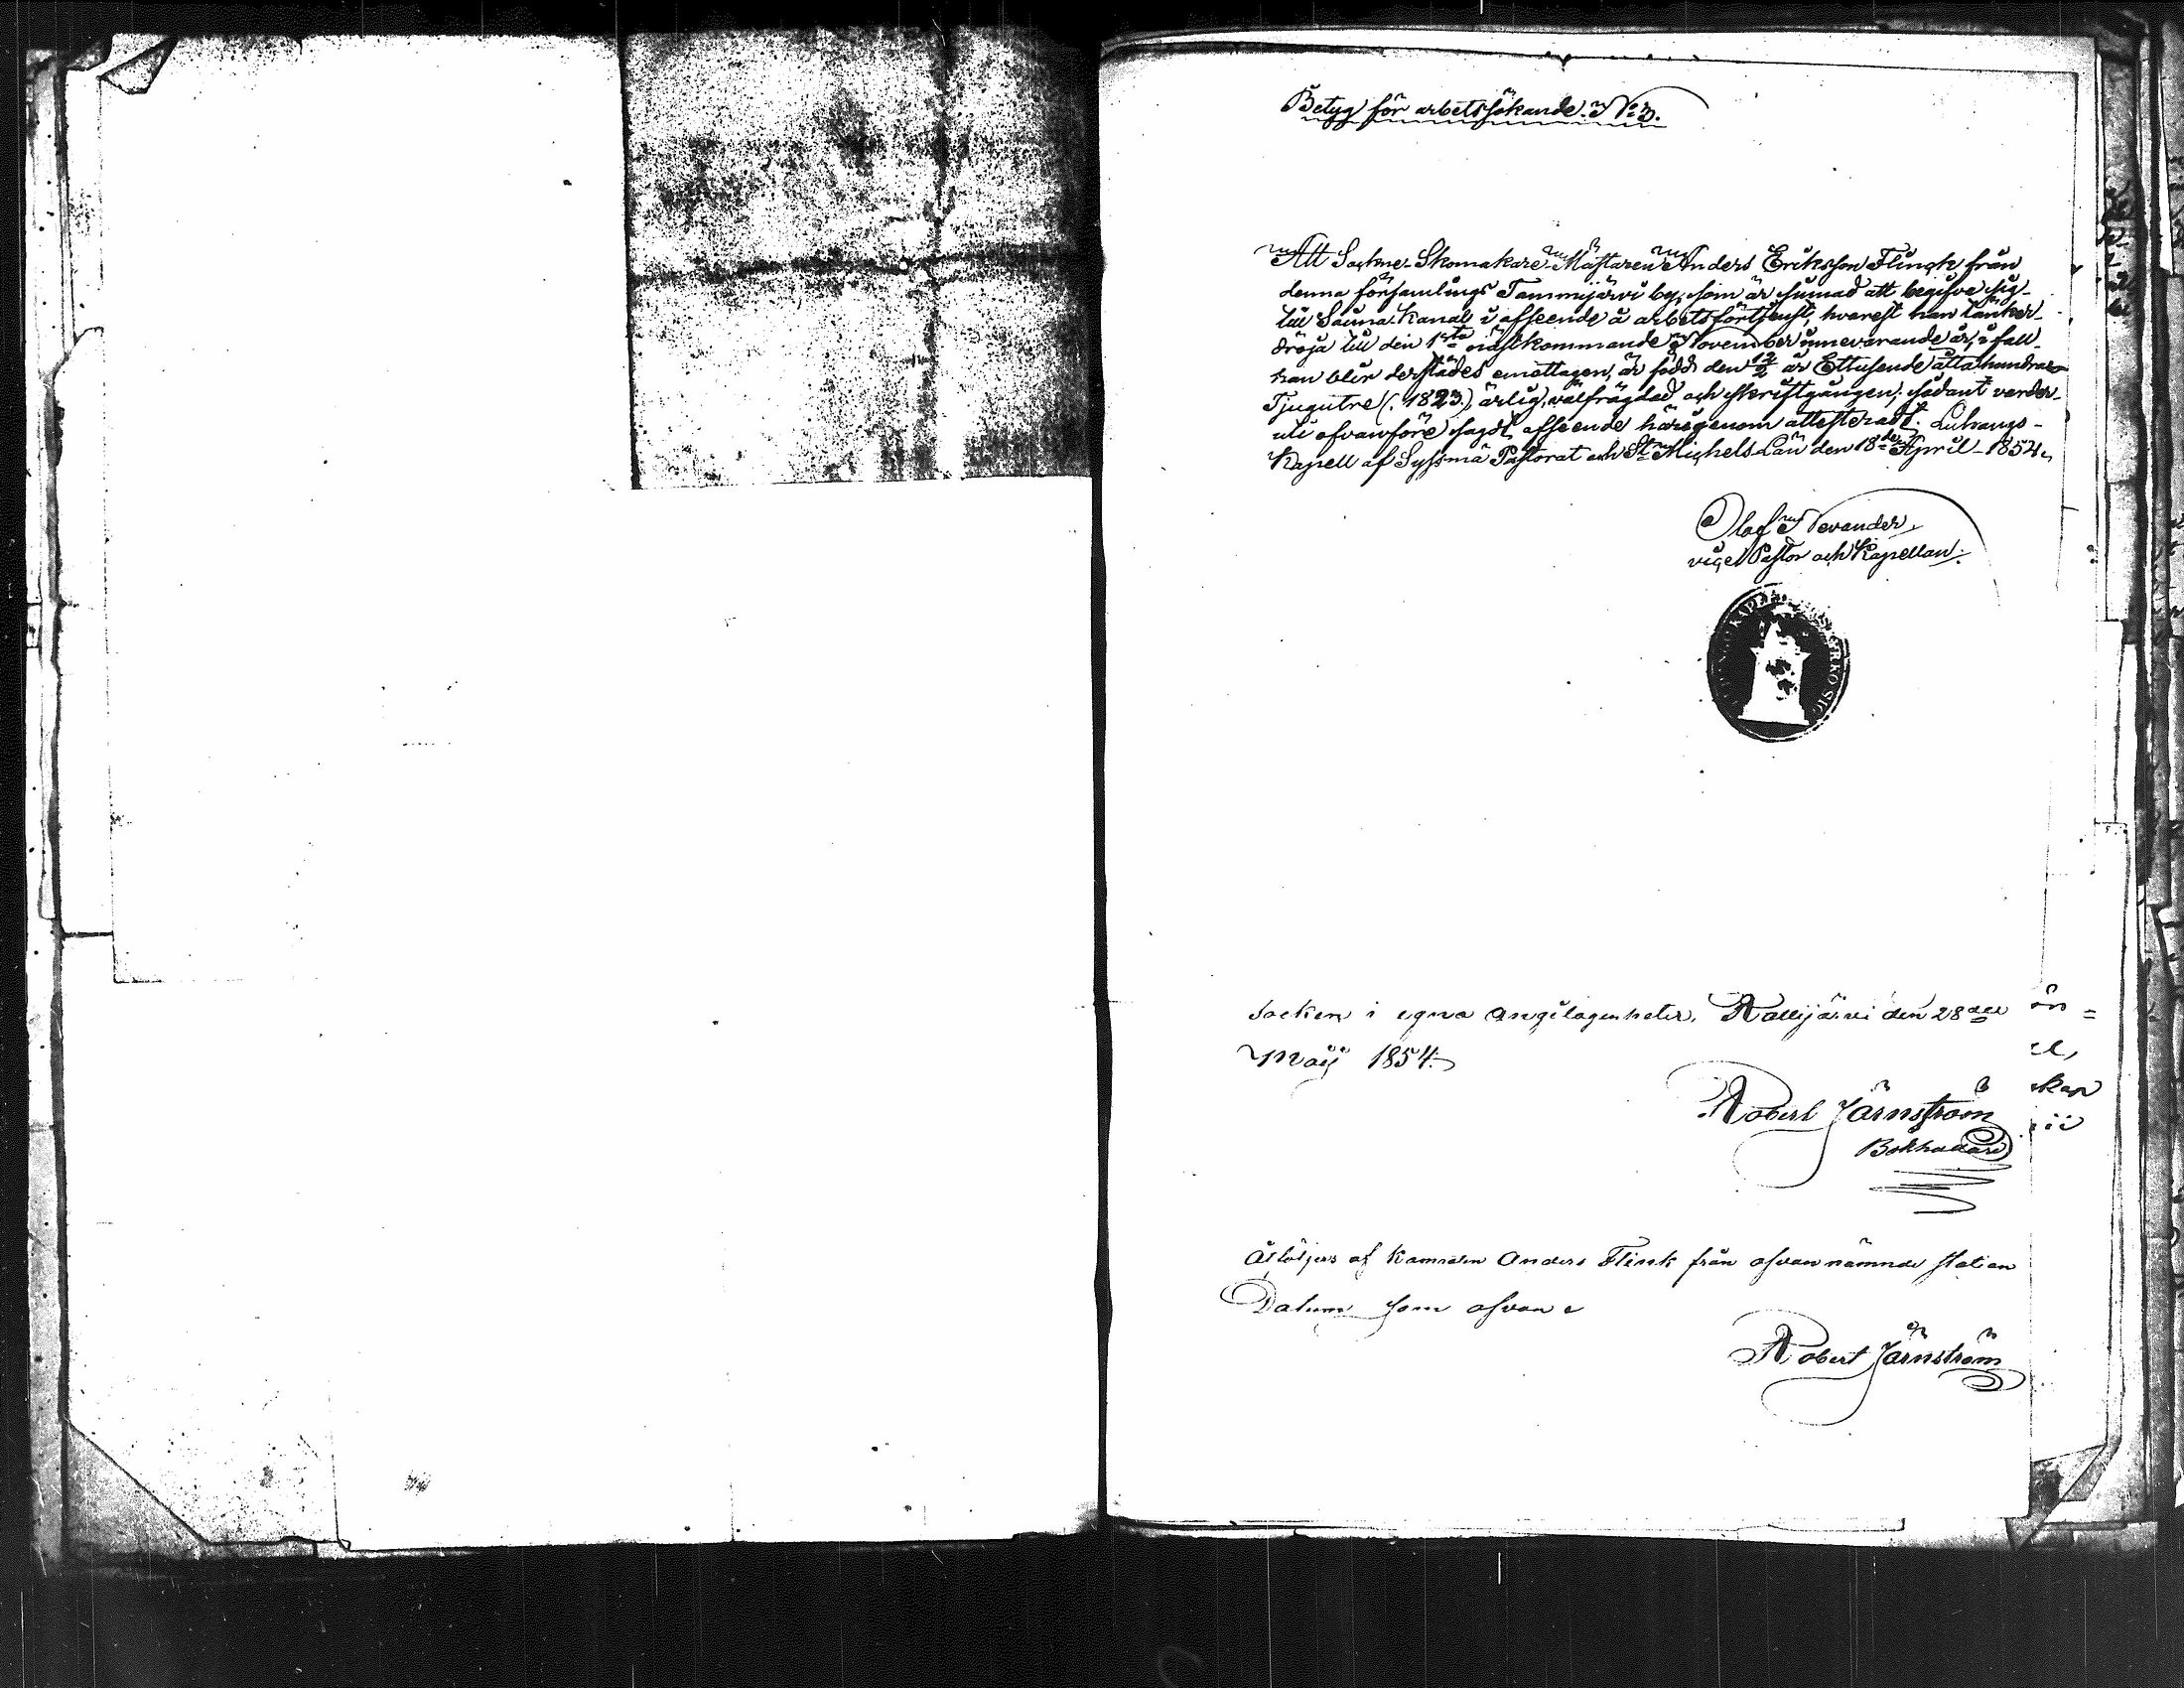 Betyg för arbetssökande. N:o 3.
Att Sockne-Skomakare-Mästaren Anders Eriksson Flinck från
denna församlings Tammijärvi by, som är sinnad att begifva sig
till Saima Kanal i afseende å arbetsförtjenst, hvarest han tänker
dröja till den 1sta nästkommande November innevarande år, i fall
han blir derstädes emottagen, är född den 12/2 år Ettusende åttahundrade
Tjugutre (: 1823 :) ärlig, välfrägdad och skriftgången; sådant varder
uti ofvanföre sagdt afseende härigenom attesteradt. Luhango
Kapell af Sysmä Pastorat och St Michels Län den 18de April 1854.
Olof Nevander,
vice Pastor och Kapellan.
KAPELL KYRKO SIG
Socken i egna angelägenheter. den 28de
Maij 1854.
Robert Järnström
Bokhållare
än
el,
kap
Åtföljes af Kamraten Anders Flink från ofvannämnde station
Datum som ofvan
Robert Järnström